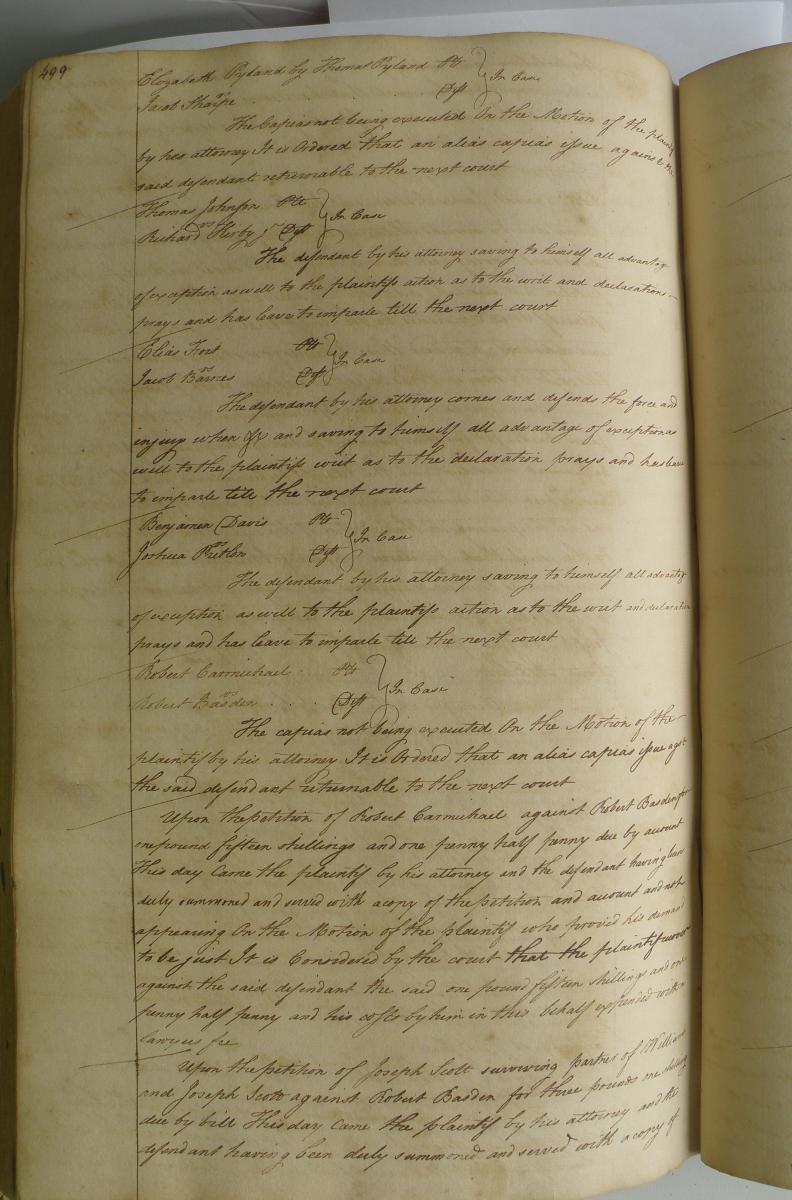 499
Elizabeth Ryland by Thomas Ryland Plt
vs In Case
Jacob Sharpe Dft
The Capias not being executed On the Motion of the plaintif
by his attorney It is Ordered that an alias capias issue against the
said defendant returnable to the next court
Thomas Johnson Plt
vs In Case
Richard Kerby jr Dft
The defendant by his attorney saving to himself all advantage
of exception as well to the plaintifs action as to the writ and declarations
prays and has leave to imparle till the next court
Elias Fort Plt
vs In Case
Jacob Barnes Dft
The defendant by his attorney comes and defends the force and
injury when &c and saving to himself all advantage of exception as
well to the plaintifs writ as to the declaration prays and has leave
to imparle till the next court
Benjamen Davis Plt
vs In Case
Joshua Dft
The defendant by his attorney saving to himself all advantage
of exception as well to the plaintifs action as to the writ and declaration
prays and has leave to imparle till the next court
Robert Carmichael Plt
vs In Case
Robert Basden Dft
The capias not being executed On the Motion of the
plaintif by his attorney It is Ordered that an alias capias issue agst
the said defendant returnable to the next court
Upon the petition of Robert Carmichael against Robert Basden for
one pound fifteen shillings and one penny half penny due by account
This day Came the plaintif by his attorney and the defendant having been
duly summoned and served with a copy of the petition and account and not
appearing On the Motion of the plaintif who proved his demand
to be just It is Considered by the court that the plaintif recover
against the said defendant the said one pound fifteen shillings and one
penny half penny and his costs by him in this behalf expended with a
lawyers fee
Upon the petition of Joseph Scott surviving partner of William
and Joseph Scott against Robert Basden for three pounds one shilling
due by bill This day Came the plaintif by his attorney and the
defendant having been duly summoned and served with a copy of